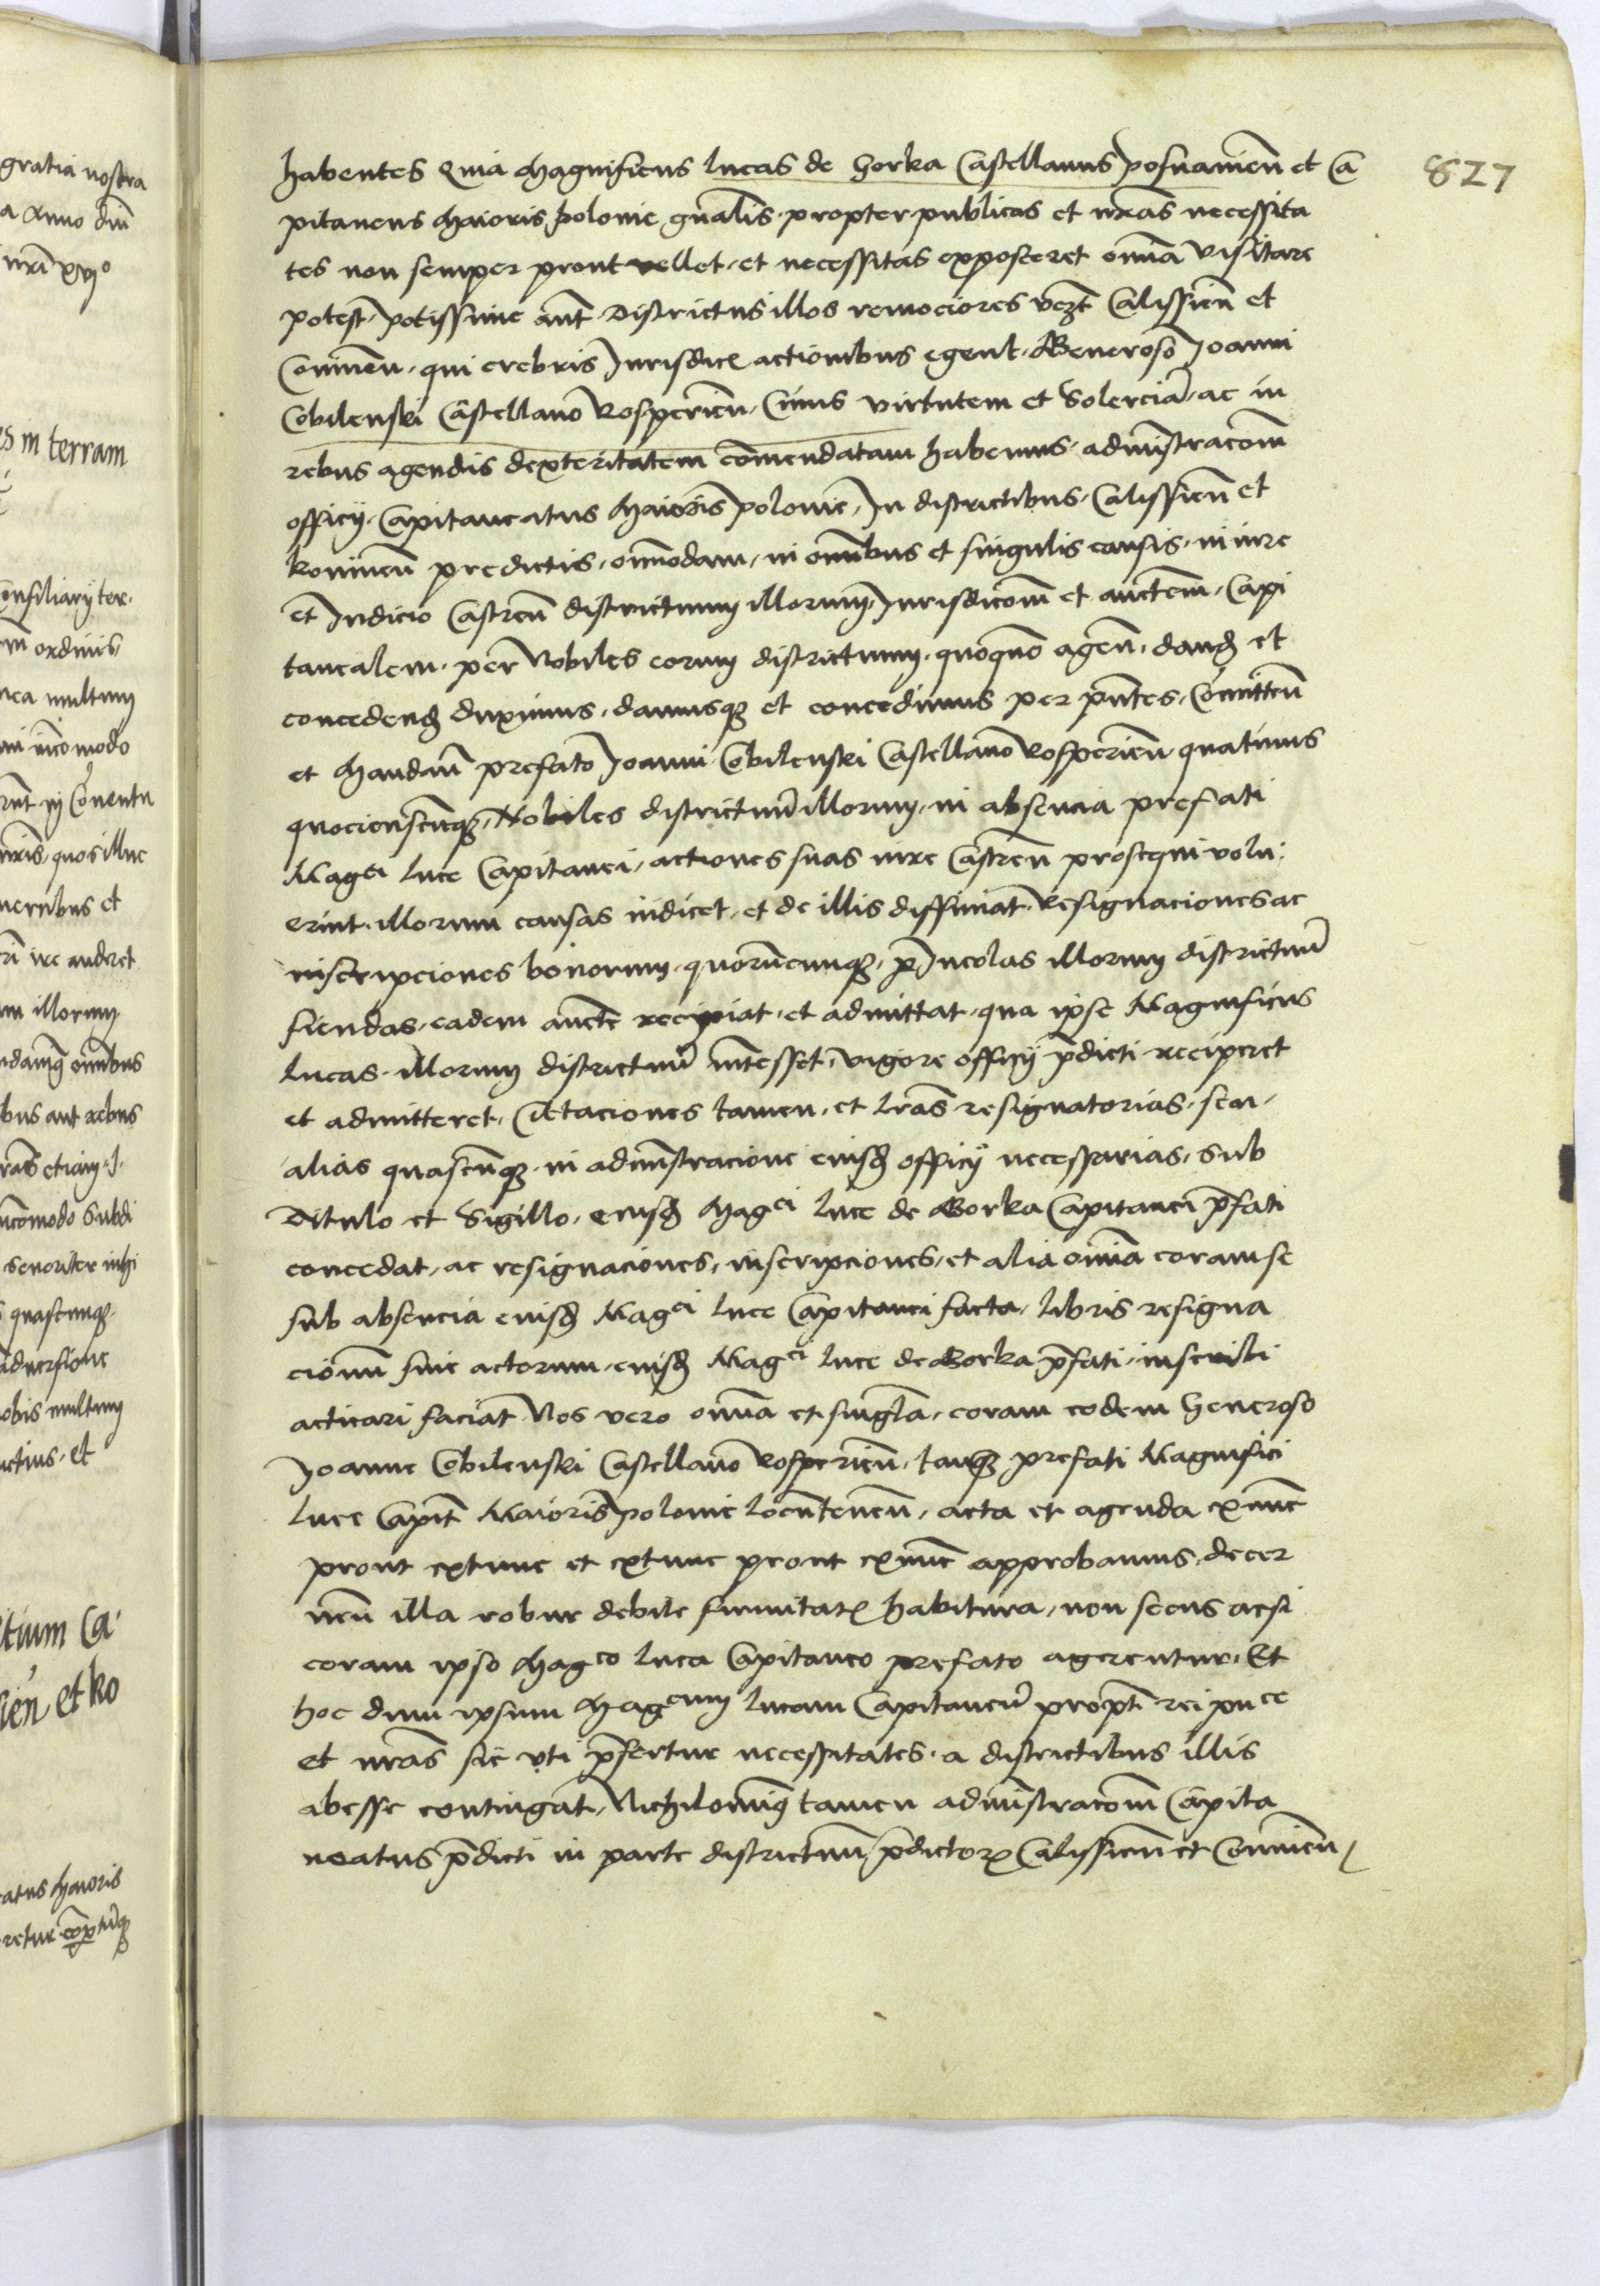 827
habentes Quia Magnificus Lucas de Gorka Castellanus posnanien̄ et Ca
pitaneus Maioris polonie gn̄alis propter publicas et nr̄as necessita
tes non semper prout vellet et necessitas exposceret om̄ia visitare
potest, potissime aūt Districtus illos remociores vezt Calissien̄ et
Coninen̄, qui crebris Jurisdice actionibus egent. Generoso Joanni
Cobilenski Castellano Rosperien̄, Cuius virtutem et Solerciam̄ ac in
rebus agendis dexteritatem com̄endatam habemus, adm̄istracōm̄
officij Capitaneatus Maioris polonie, In districtibus Calissien̄ et
koninen̄ predictis, om̄imodam, in om̄ibus et singulis causis, in iure
et Judicio Castren̄ districtuum illorum, Jurisdicōm̄ et auctem̄, Capi
tanealem, per Nobiles eorum districtuum, quoquō agen̄, dand̄ et
concedend̄ duximus, damusq₃ et concedimus per pn̄tes, Com̄itten̄
et Mandan̄ prefato Joanni Cobilenski Castellano Rosperien̄ quatinus
quocienscūq₃, Nobiles districtuū illorum, in absencia prefati
Magci Luce Capitanei, actiones suas iure Castren̄ prosequi volu
erint, illorum causas iudicet, et de illis diffiniat, Resignaciones ac
inscripciones bonorum, quorūcunq₃, p̄ Incolas illorum districtuū
fiendas, eadem aucte recipiat, et admittat, qua ipse Magnificus
Lucas, illorum districtuū intesset, vigore officij p̄dicti reciperet
et admitteret, Citaciones tamen, et lr̄as resignatorias, seu
alias quascūq₃, in adm̄istracione eiusd̄ officij necessarias, sub
Titulo et Sigillo, eiusd̄ Magci Luce de Gorka Capitanei p̄fati
concedat, ac resignaciones, inscripciones, et alia om̄ia coram se
sub absencia eiusd̄ Magci Luce Capitanei facta, libris resigna
cionū siue actorum, eiusd̄ Magci Luce de Gorka p̄fati, inscribi
acticari faciat Nos vero om̄ia et singl̄a, coram eodem Generoso
Joanne Cobilenski Castellano Rosperien̄, tanq₃ prefati Magnifici
Luce Capit̄ Maioris polonie locūtenen̄, acta et agenda exnūc
prout extunc et extunc prout exnūc approbamus, decer
nen̄ illa robur debite firmitatis habitura, non secus acsi
coram ipso Magco Luca Capitaneo prefato agerentur, Et
hoc dum ipsum Magcum Lucam Capitaneū propt̄ rei puce
et nr̄as sic vti p̄fertur necessitates, a districtibus illis
abesse contingat, Nichilominus tamen adm̄istracōm̄ Capita
neatus p̄dicti in parte districtuū p̄dictor₂ Calissien̄ et Coninien̄